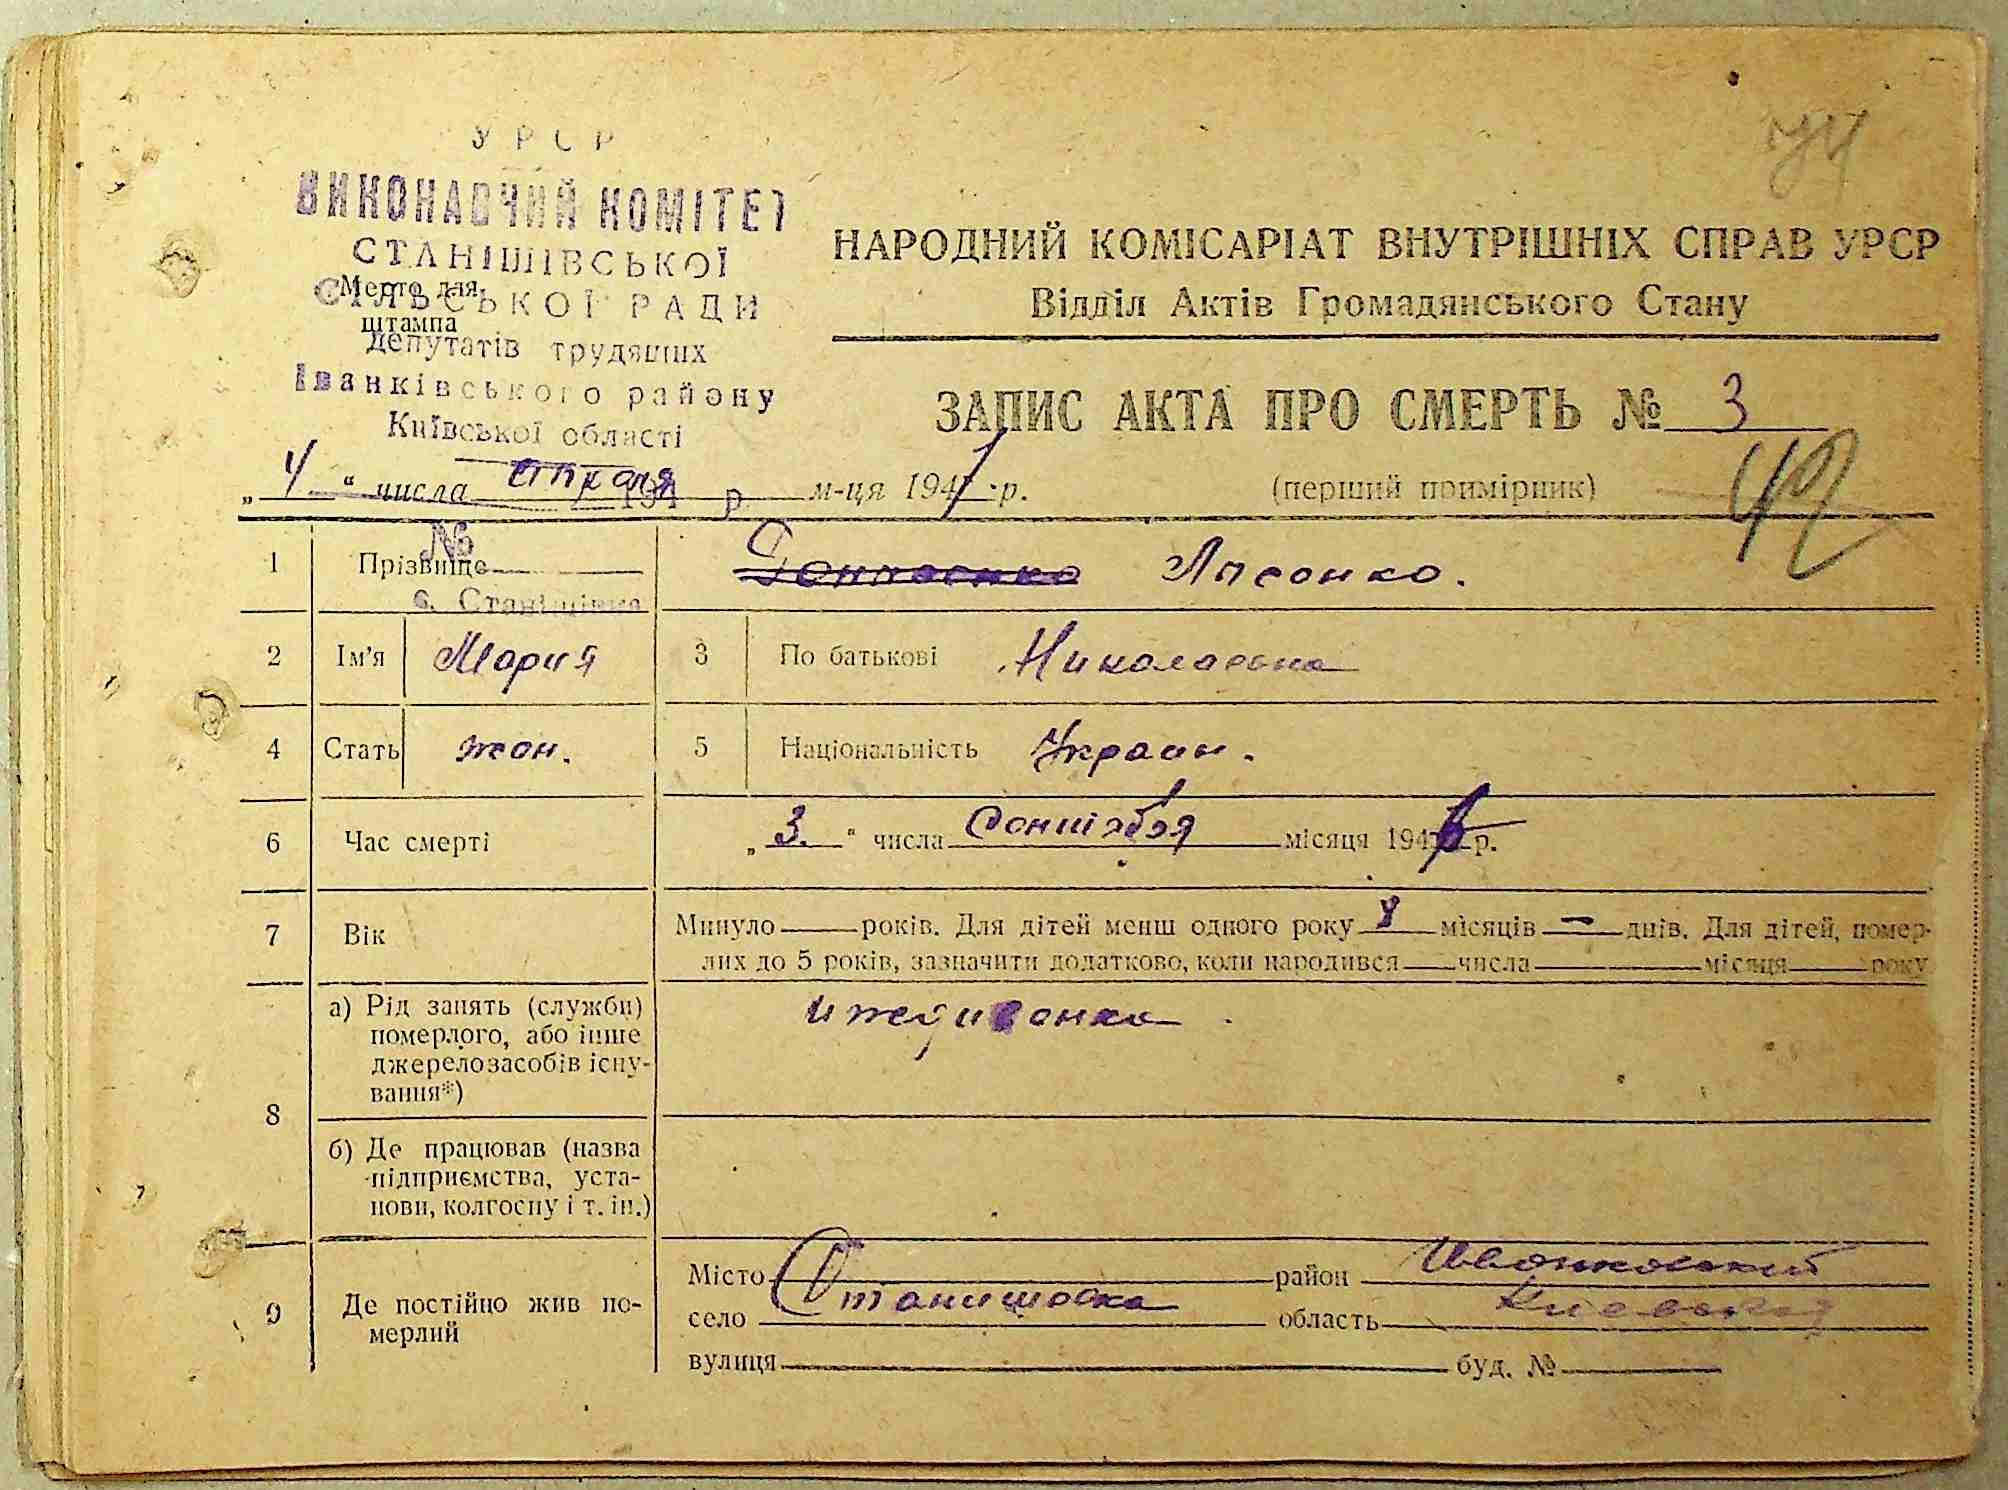 УРСР
ВИКОНАВЧИЙ КОМІТЕТ
СТАНІШІВСЬКОЇ
СІЛЬСЬКОЇ РАДИ
Место для
штампа
депутатів трудящих
Іванківського району
Київської області
НАРОДНИЙ КОМІСАРІАТ ВНУТРІШНІХ СПРАВ УРСР
Відділ Актів Громадянського Стану
ЗАПИС АКТА ПРО СМЕРТЬ № 3
„4“ числа апреля м-ця 1941 р.
194 р.
(перший примірник)
42
№
1 Прізвище Лисенко.
с. Станішівка
2 Ім'я Мария 3 По батькові Николаевна
4 Стать жен. 5 Національність Украин.
6 Час смерті „3.“ числа Сентября місяця 194 р.
7 Вік Минуло — років. Для дітей менш одного року 8 місяців — днів. Для дітей, помер-
лих до 5 років, зазначити додатково, коли народився — числа — місяця — року
8 а) Рід занять (служби) померлого, або інше джерело засобів існування*) иждивенка.
б) Де працював (назва підприємства, установи, колгоспу і т. ін.)
9 Де постійно жив померлий
Місто район Иванковский
село Станишовка область Киевская
вулиця буд. №